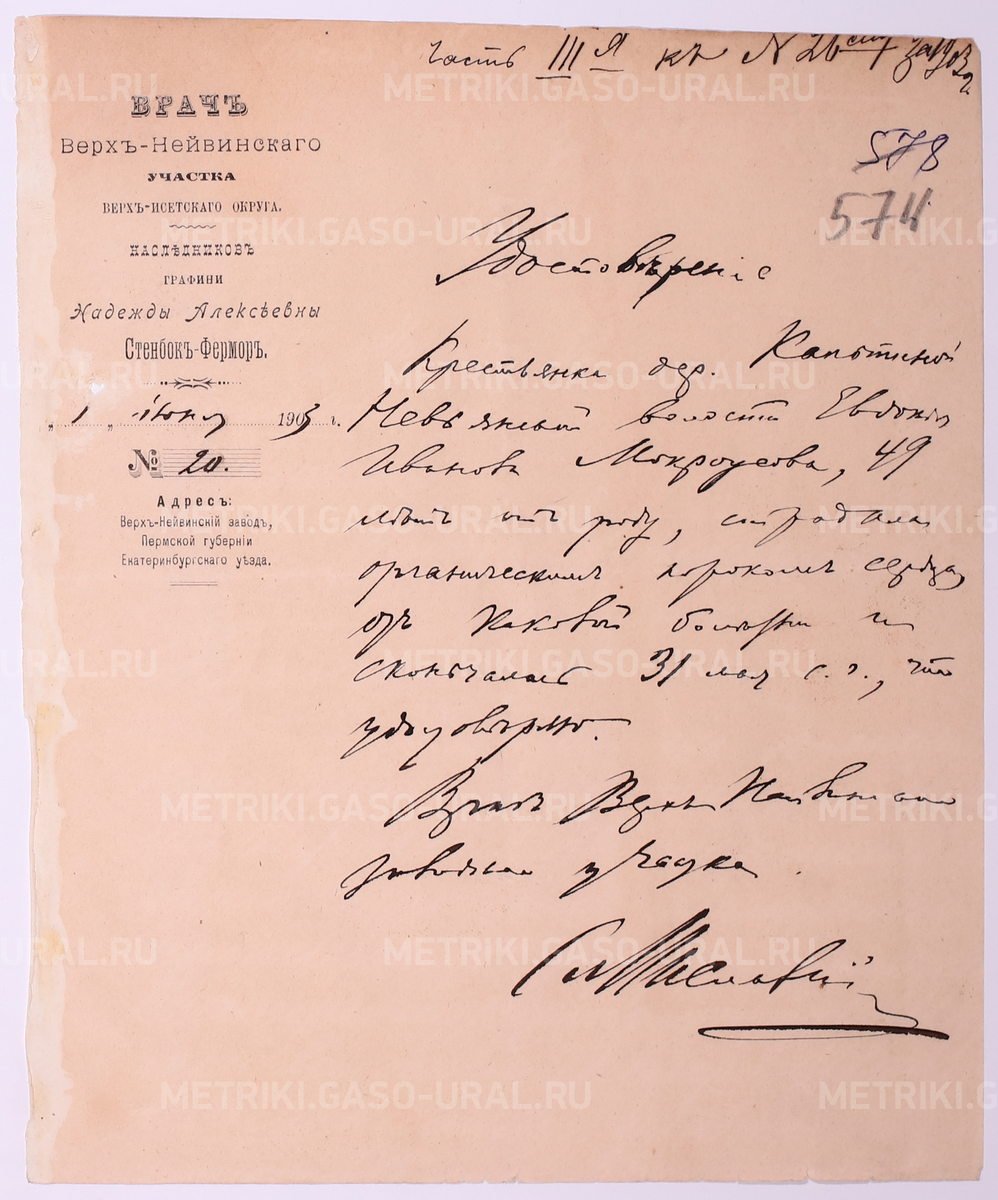 часть III я къ № 26 ст
578
574
ВРАЧЪ
Верхъ-Нейвинскаго
УЧАСТКА
ВЕРХЪ-ИСЕТСКАГО ОКРУГА.
НАСЛѢДНИКОВЪ
ГРАФИНИ
Надежды Алексѣевны
Стенбокъ-Ферморъ.
„ 1 „ Іюня 1903 г.
№ 20.
Адресъ:
Верхъ-Нейвинскій заводъ,
Пермской губерніи
Екатеринбургскаго уѣзда.
Удостовѣреніе
Крестьянка дер.
Невьянской волости Евдокія
Иванова Мокроусова, 49
лѣтъ отъ роду, страдала
органическимъ порокомъ сердца,
отъ каковой болѣзни и
скончалась 31 мая с. г., что
удостовѣряю.
Врачъ Верхъ Нейвинскаго
заводскаго участка.
METRIKI.GASO-URAL.RU